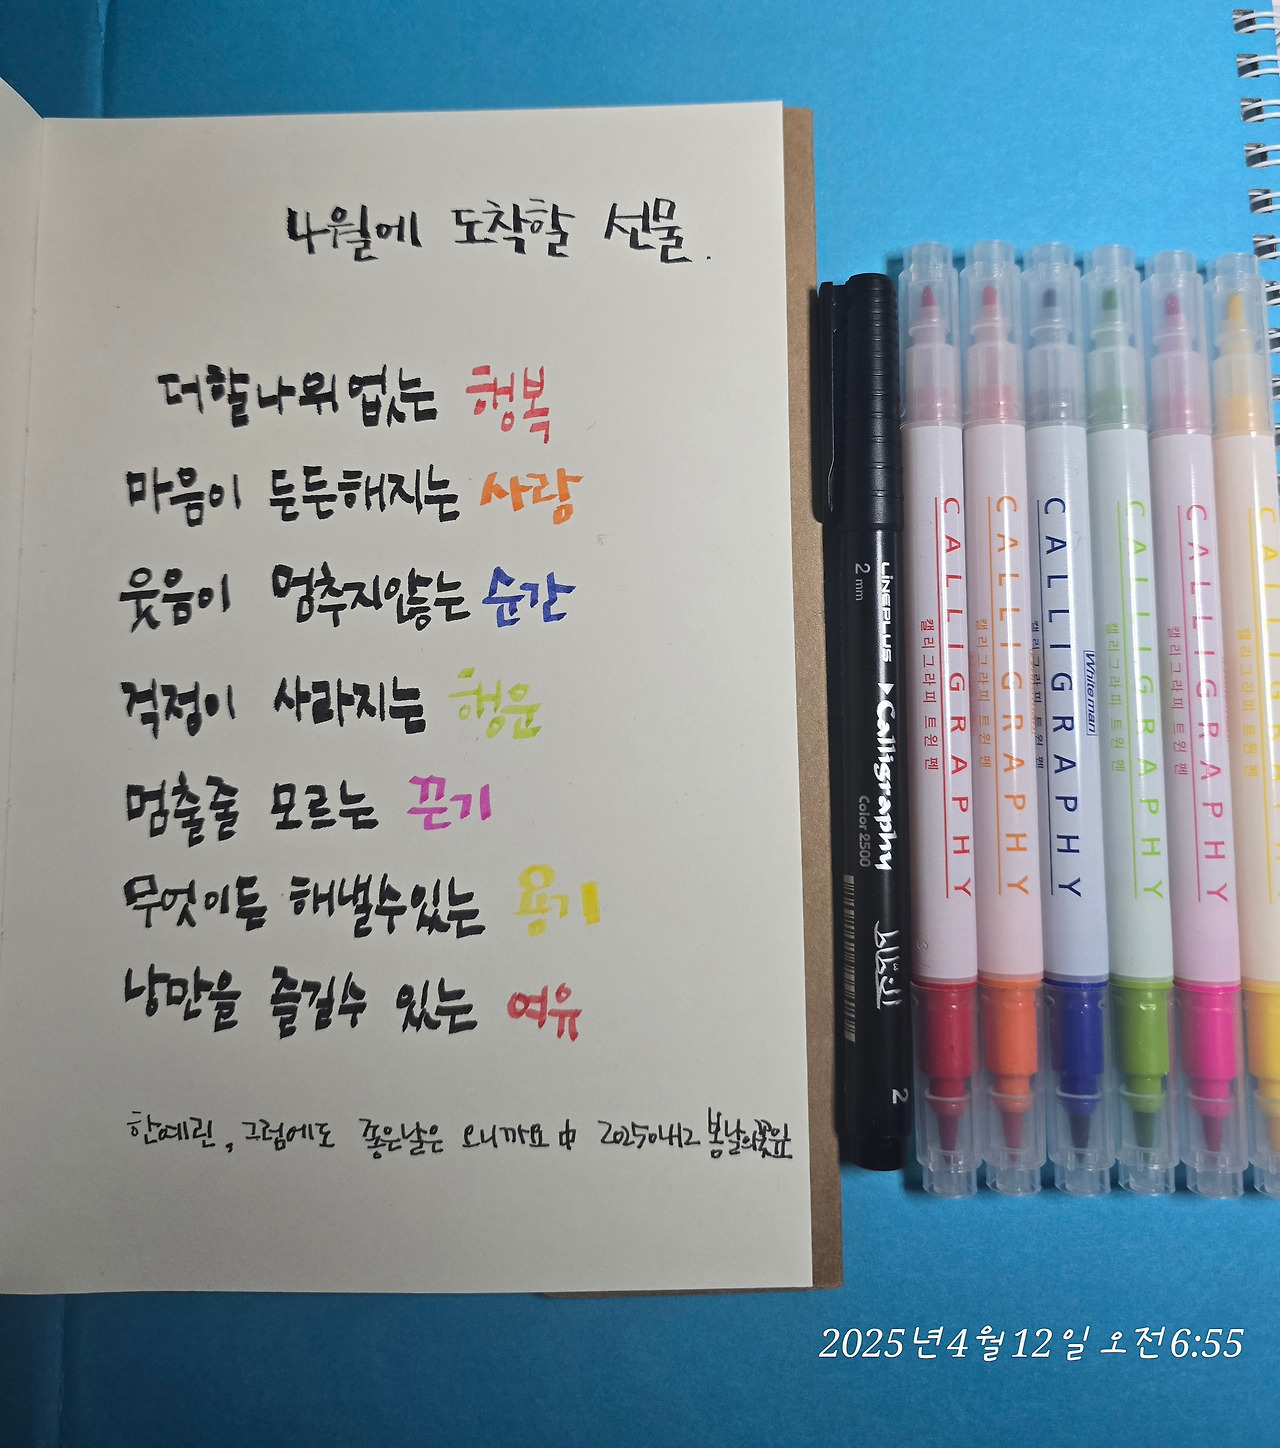 4월에 도착할 선물.
더할나위없는 행복
마음이 든든해지는 사랑
웃음이 멈추지않는 순간
걱정이 사라지는 행운
멈출줄 모르는 끈기
무엇이든 해낼수있는 용기
낭만을 즐길수 있는 여유
한예린, 그럼에도 좋은날은 오니까요 中 20250412 봄날의꽃잎
2 mm LINEPLUS ▶Calligraphy Color 2500 2
CALLIGRAPHY
캘리그라피 트윈펜
CALLIGRAPHY
캘리그라피 트윈펜
CALLIGRAPHY
캘리그라피 트윈펜
Whiteman
CALLIGRAPHY
캘리그라피 트윈펜
CALLIGRAPHY
캘리그라피 트윈펜
CALLIGRAPHY
캘리그라피 트윈펜
2025년 4월 12일 오전 6:55